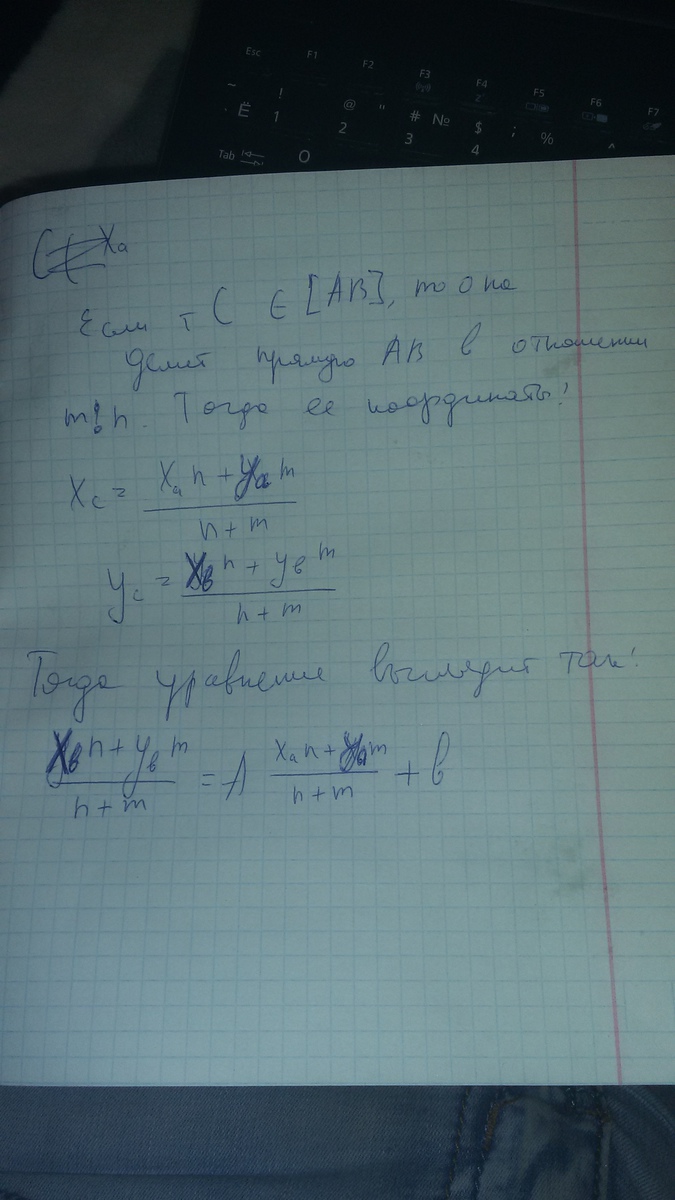 Esc F1 F2 F3 F4 F5 F6 F7
~ Ё ! 1 @ " 2 # № 3 $ ; 4 % ^
Tab
Xa
Если т C ∈ [AB], то она
делит прямую AB в отношении
m:n. Тогда ее координаты:
Xc = (Xa n + ya m) / (n + m)
yc = (Xв n + yв m) / (n + m)
Тогда уравнение выглядит так:
(Xв n + yв m) / (n + m) = A (Xa n + ya m) / (n + m) + b